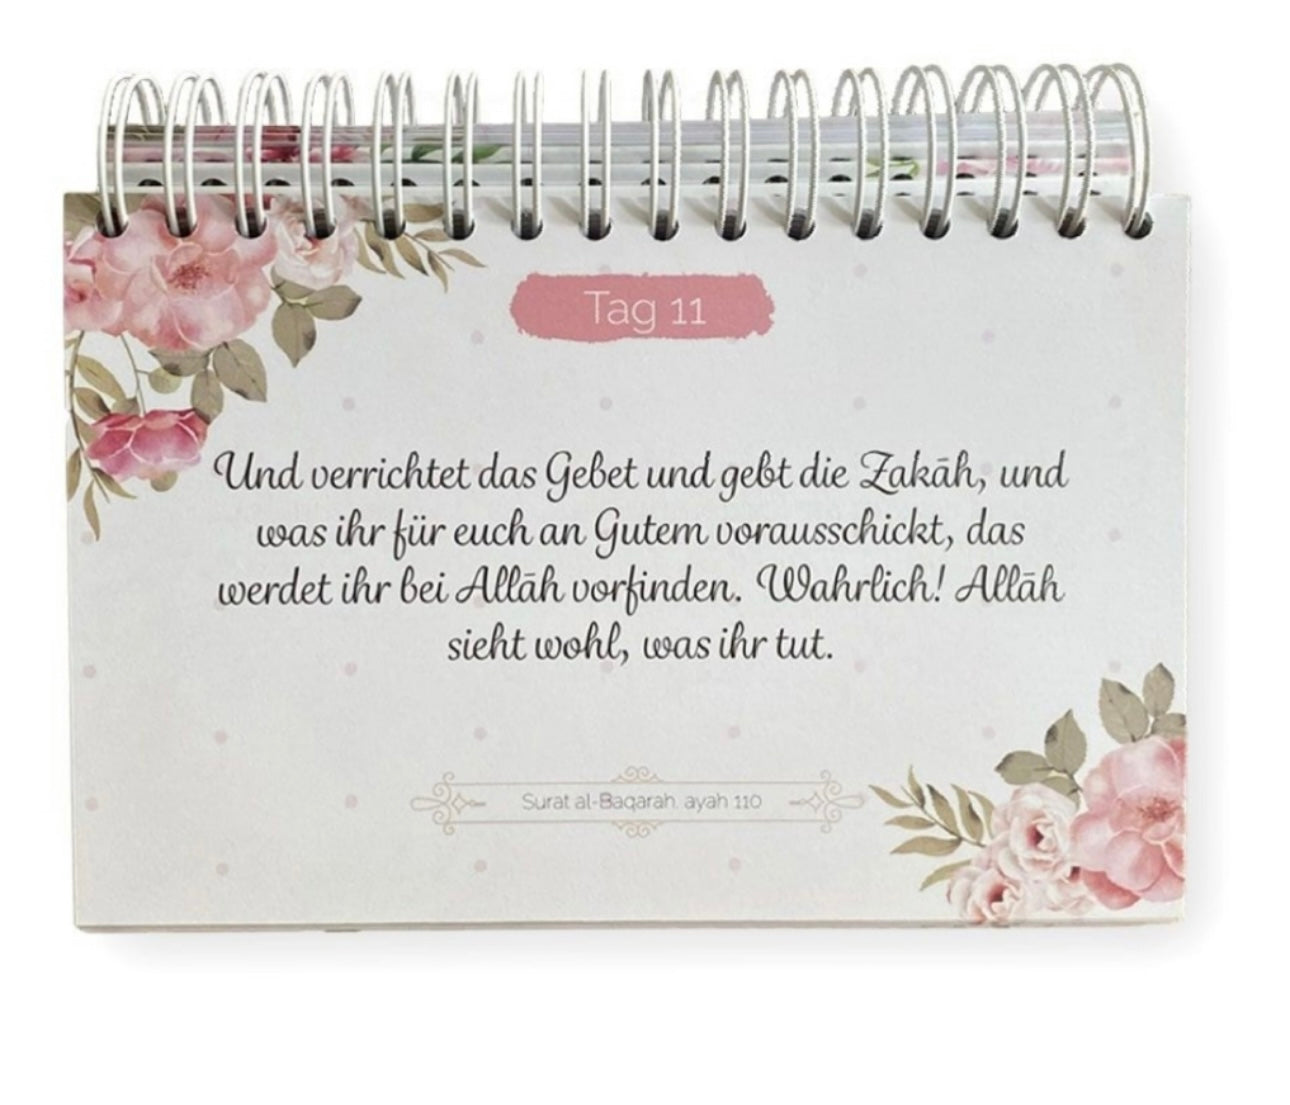 Tag 11
Und verrichtet das Gebet und gebt die Zakāh, und
was ihr für euch an Gutem vorausschickt, das
werdet ihr bei Allāh vorfinden. Wahrlich! Allāh
sieht wohl, was ihr tut.
Surat al-Baqarah, ayah 110